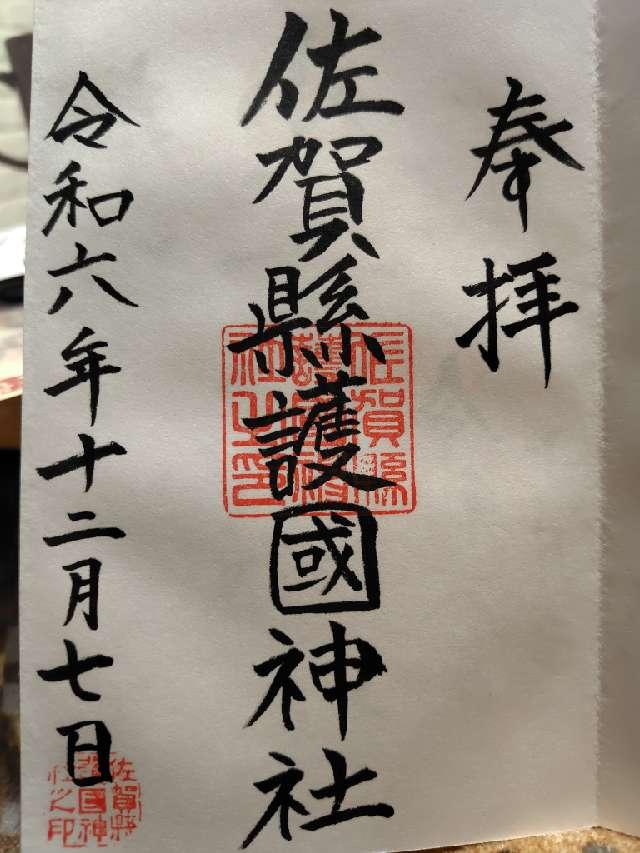 奉拝
佐賀縣護國神社
佐賀縣護國神社之印
令和六年十二月七日
佐賀縣護国神社之印